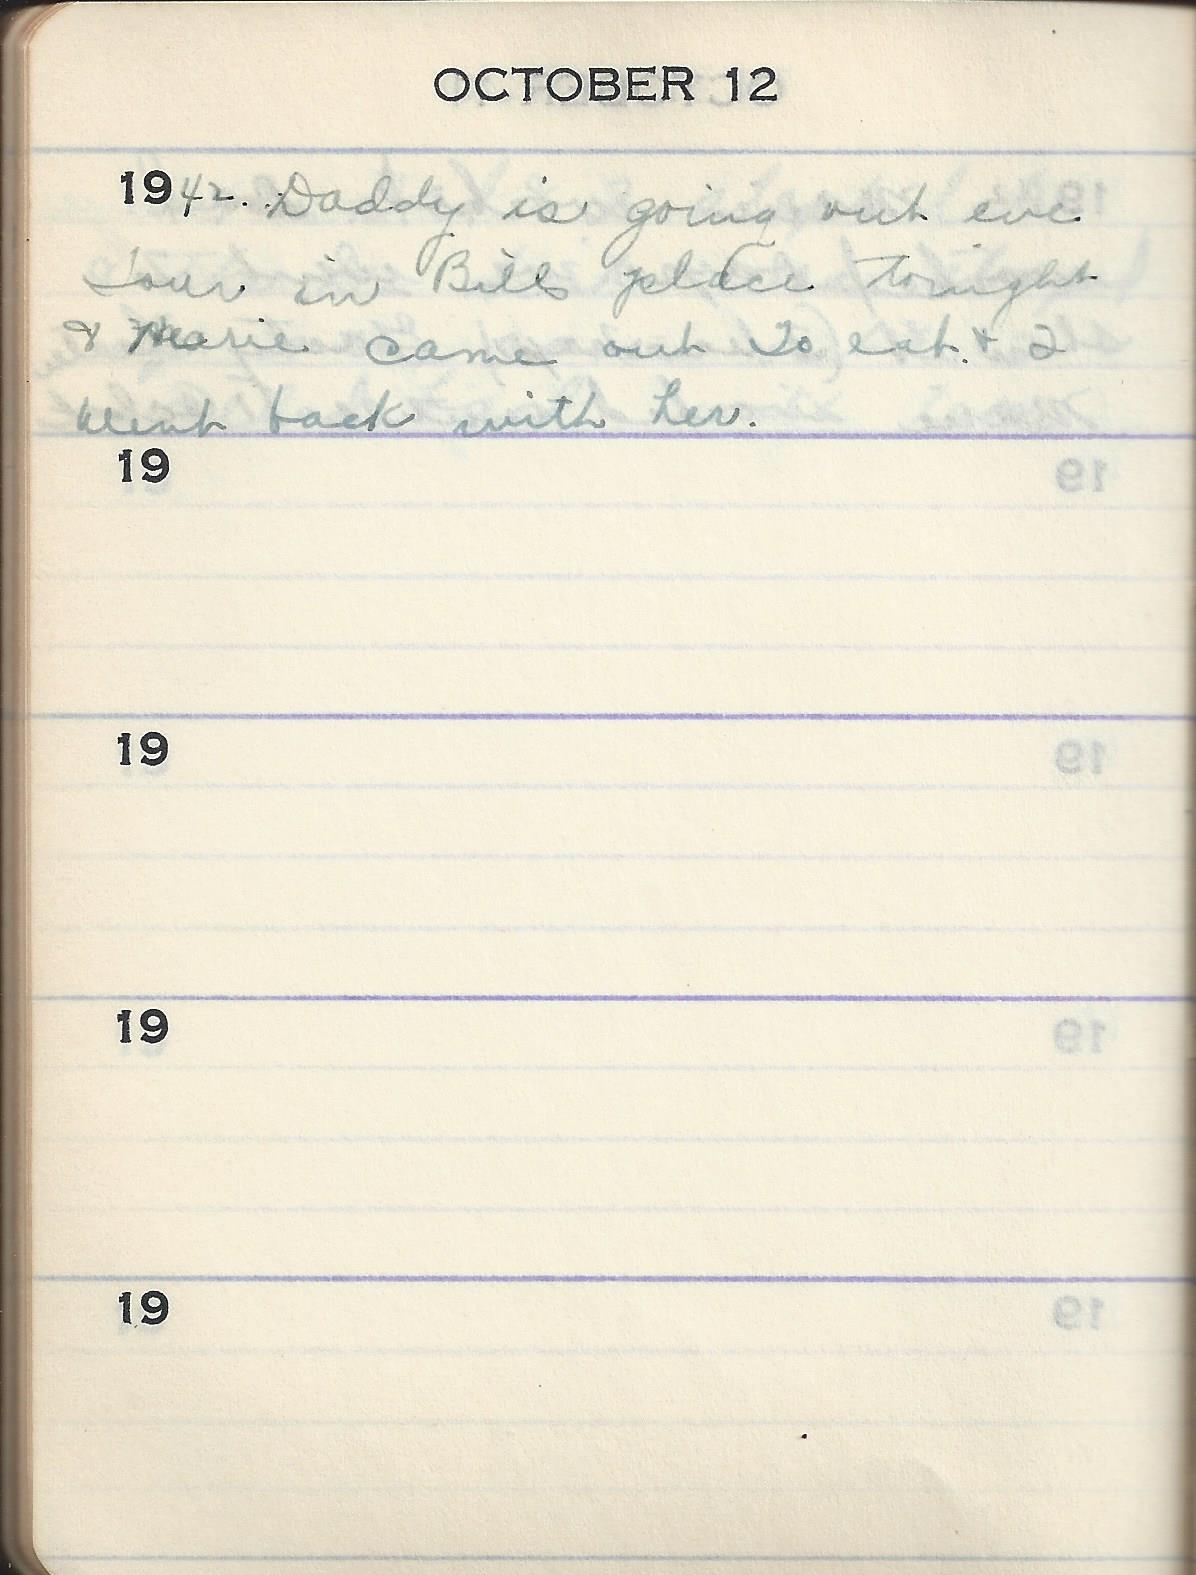 OCTOBER 12
1942. Daddy is going out eve
tour in Bills place tonight
& Marie came out to eat. & I
went back with her.
19
19
19
19